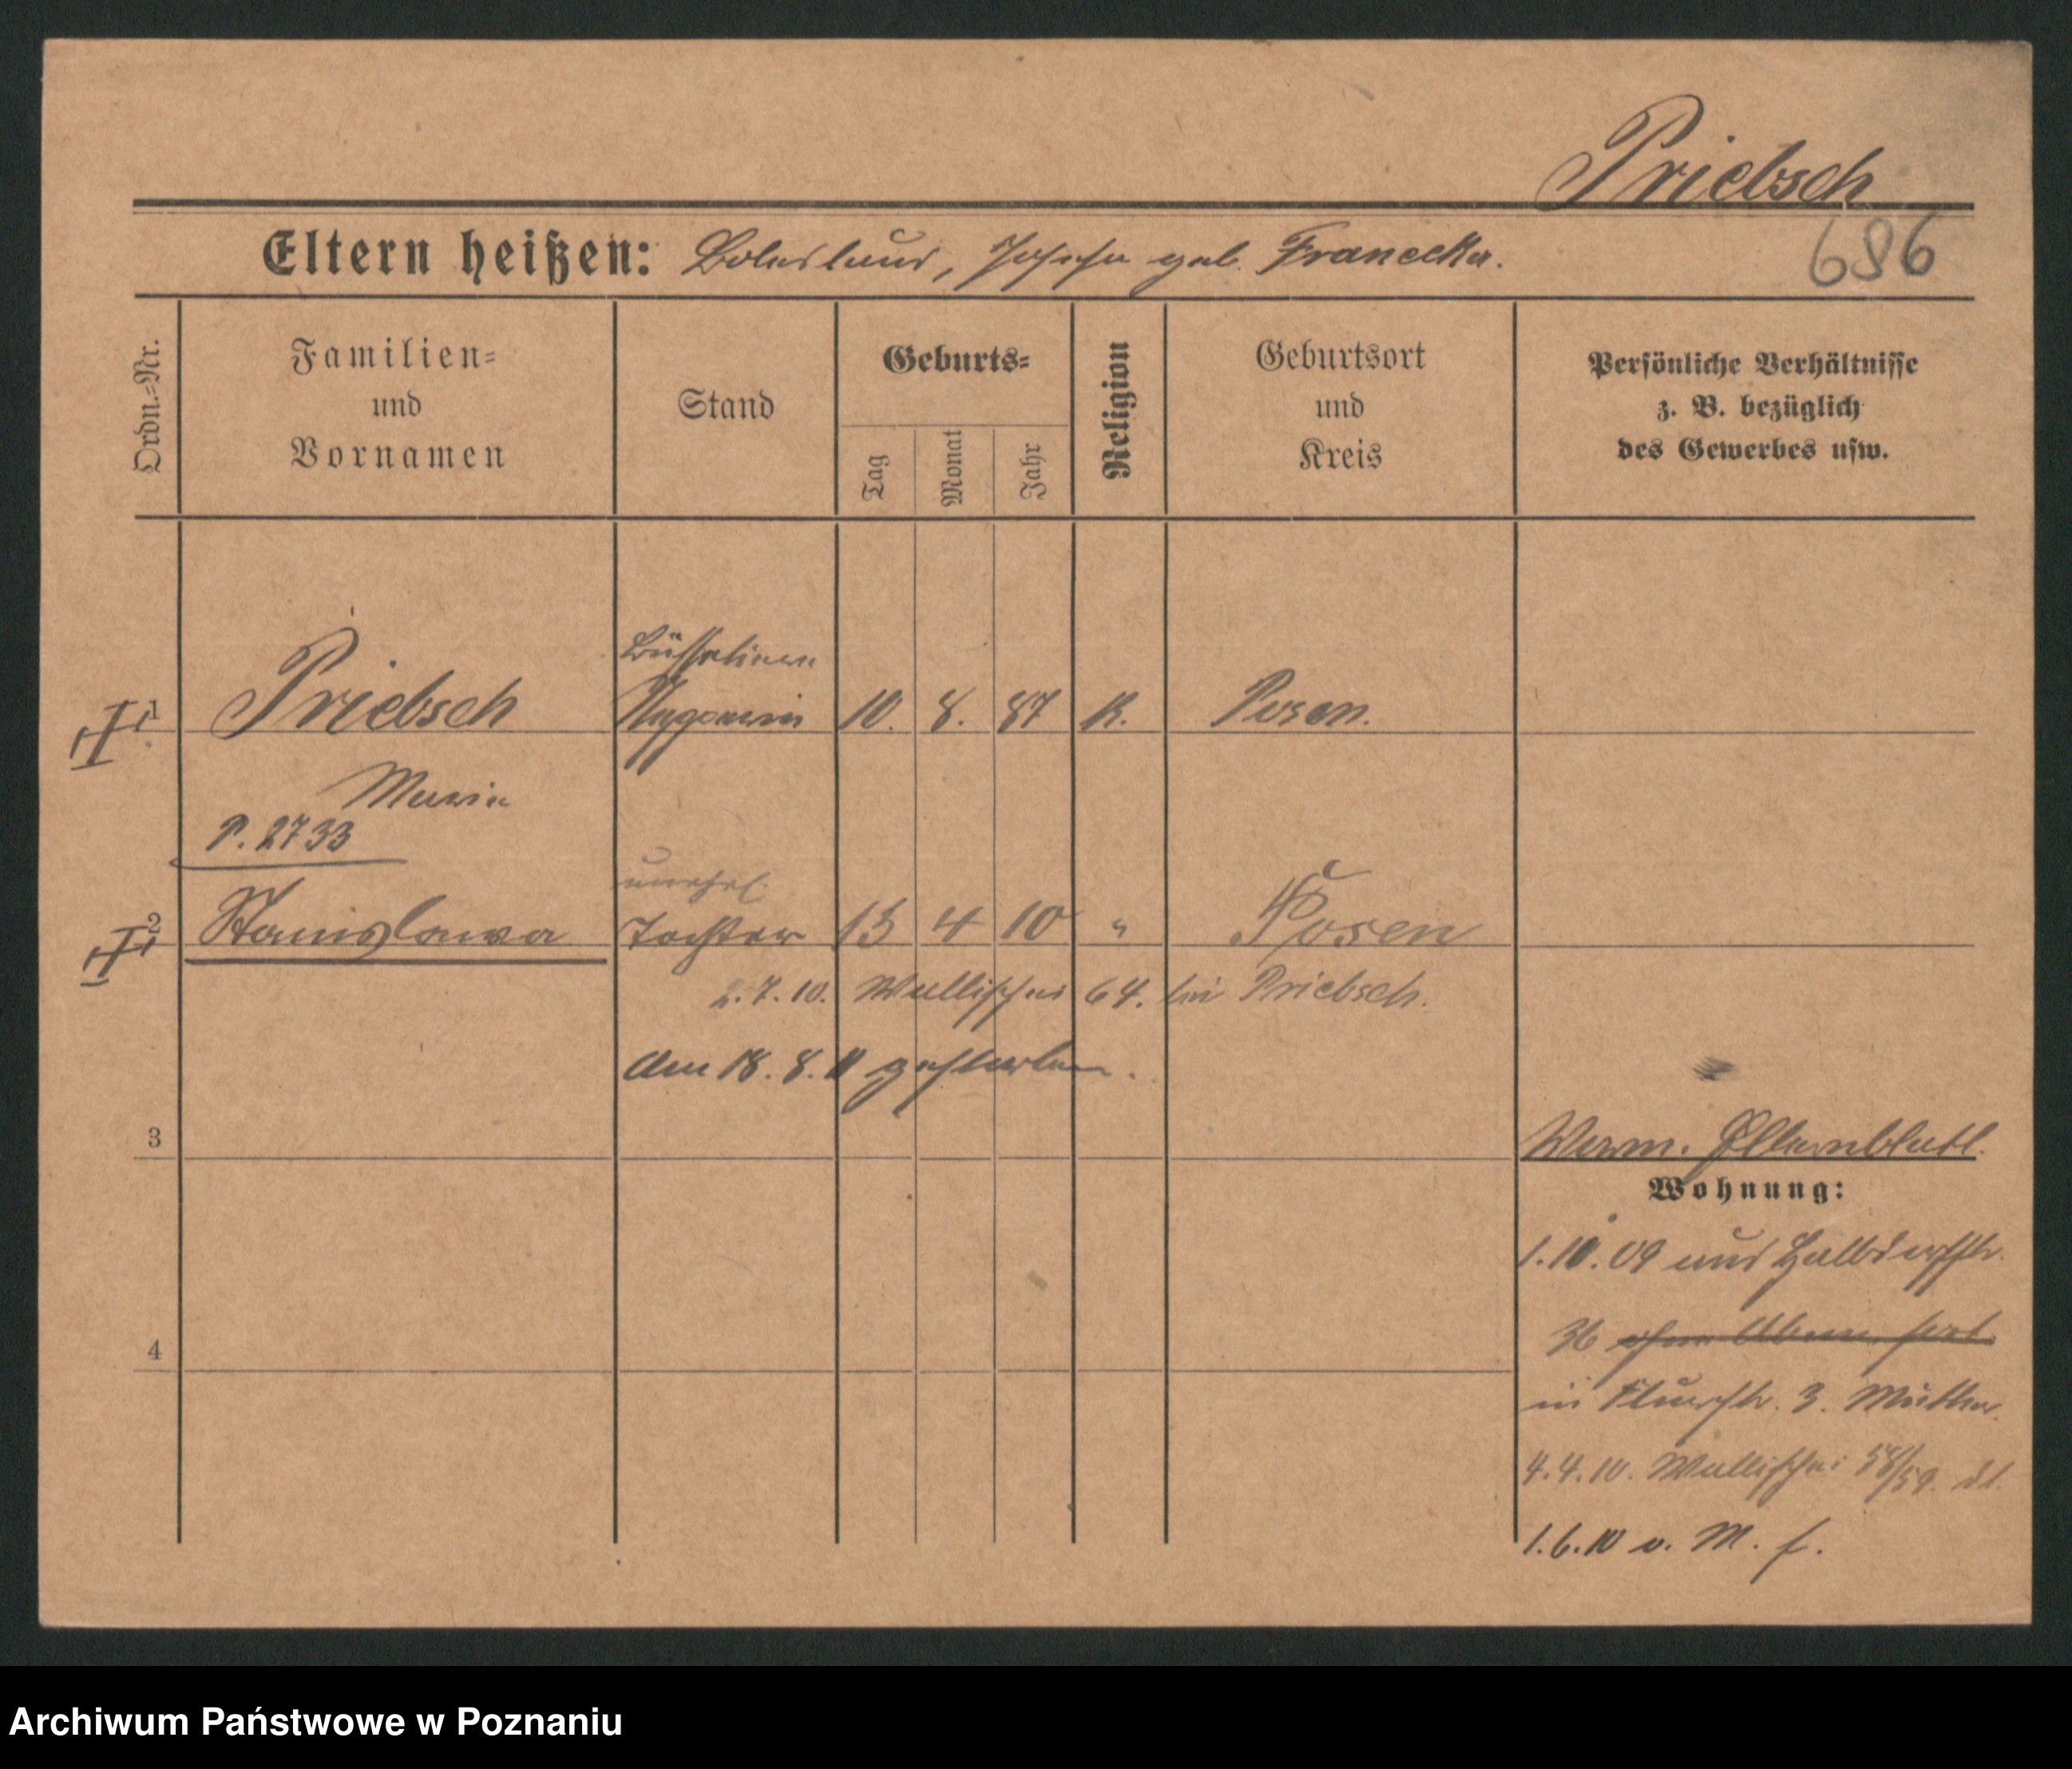 Priebsch
686
Eltern heißen: Boleslaus, Josefa geb. Franecka.
Ordn.=Nr.
Familien=
und
Vornamen
Stand
Geburts=
Tag
Monat
Jahr
Religion
Geburtsort
und
Kreis
Persönliche Verhältnisse
z. B. bezüglich
des Gewerbes usw.
1 Priebsch 10. 8. 87 K. Posen.
Maria
P. 2733
unehel.
2 Stanislawa Tochter 13 4 10 " Posen
2.7.10. Wallischei 64. bei Priebsch.
Am 18. 8. 11 gestorben.
3
Verm. Elternblatt.
Wohnung:
1.10.09 aus Halbdorfstr.
36
in Flurstr. 3. Mutter.
4
4.4.10. Wallischei 58/59.
1.6.10 v. M. f.
Archiwum Państwowe w Poznaniu